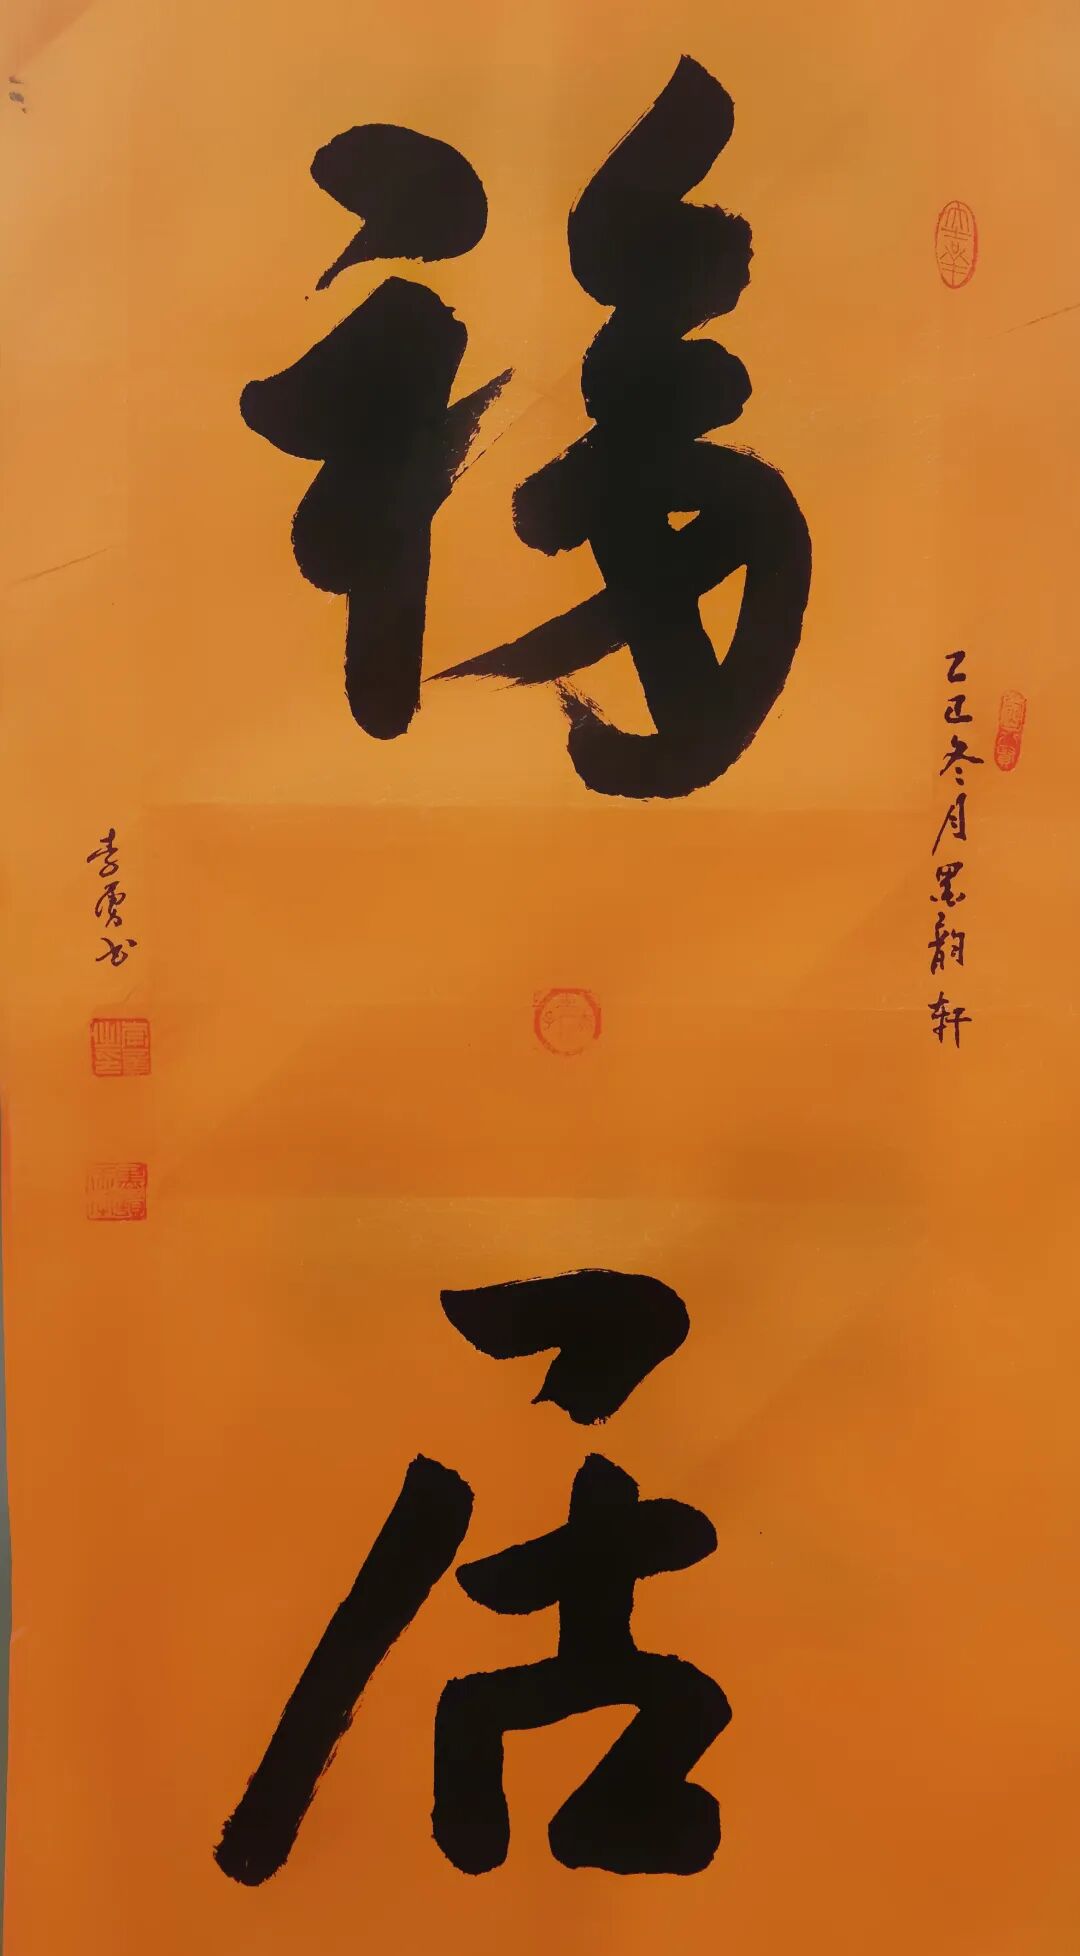 福居
乙巳冬月墨韵轩
李勇书